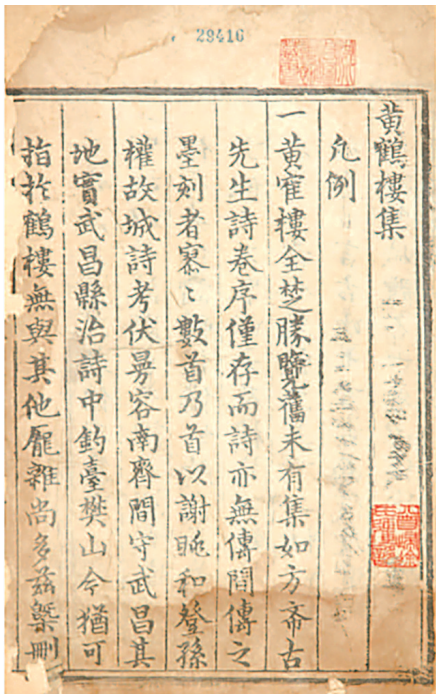 29416
黄鶴樓集
凡例
一黄寉樓全楚勝覽舊未有集如方斎古
先生詩卷序僅存而詩亦無傳間傳之
墨刻者寥〻數首乃首以謝眺和登孫
權故城詩考伏曼容南齊間守武昌其
地實武昌縣治詩中釣臺樊山今猶可
指扵鶴樓無與其他厖雜尚多兹槩刪